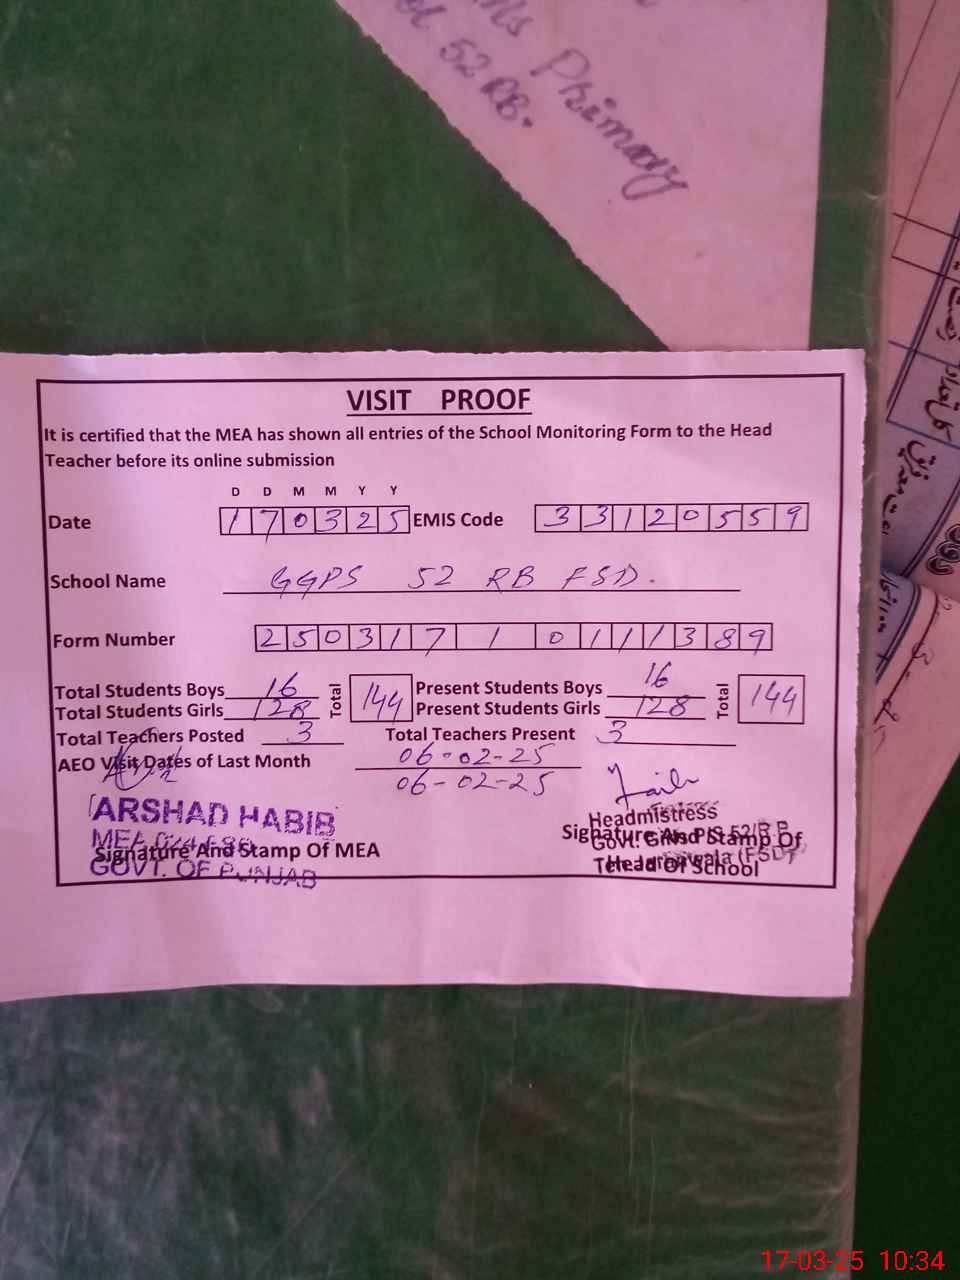 Primary
52 RB.
VISIT PROOF
It is certified that the MEA has shown all entries of the School Monitoring Form to the Head
Teacher before its online submission
D D M M Y Y
Date 170325 EMIS Code 33120559
School Name GGPS 52 RB FSD.
Form Number 250317 1 0111389
Total Students Boys 16 Total 144 Present Students Boys 16 Total 144
Total Students Girls 128 Present Students Girls 128
Total Teachers Posted 3 Total Teachers Present 3
AEO Visit Dates of Last Month 06-02-25
06-02-25
ARSHAD HABIB
MEA
Signature And Stamp Of MEA
GOVT. OF PUNJAB
Headmistress
Signature And Stamp Of
Govt. Girls P/S 52/R.B
Head Of School
(FSD)
17-03-25 10:34